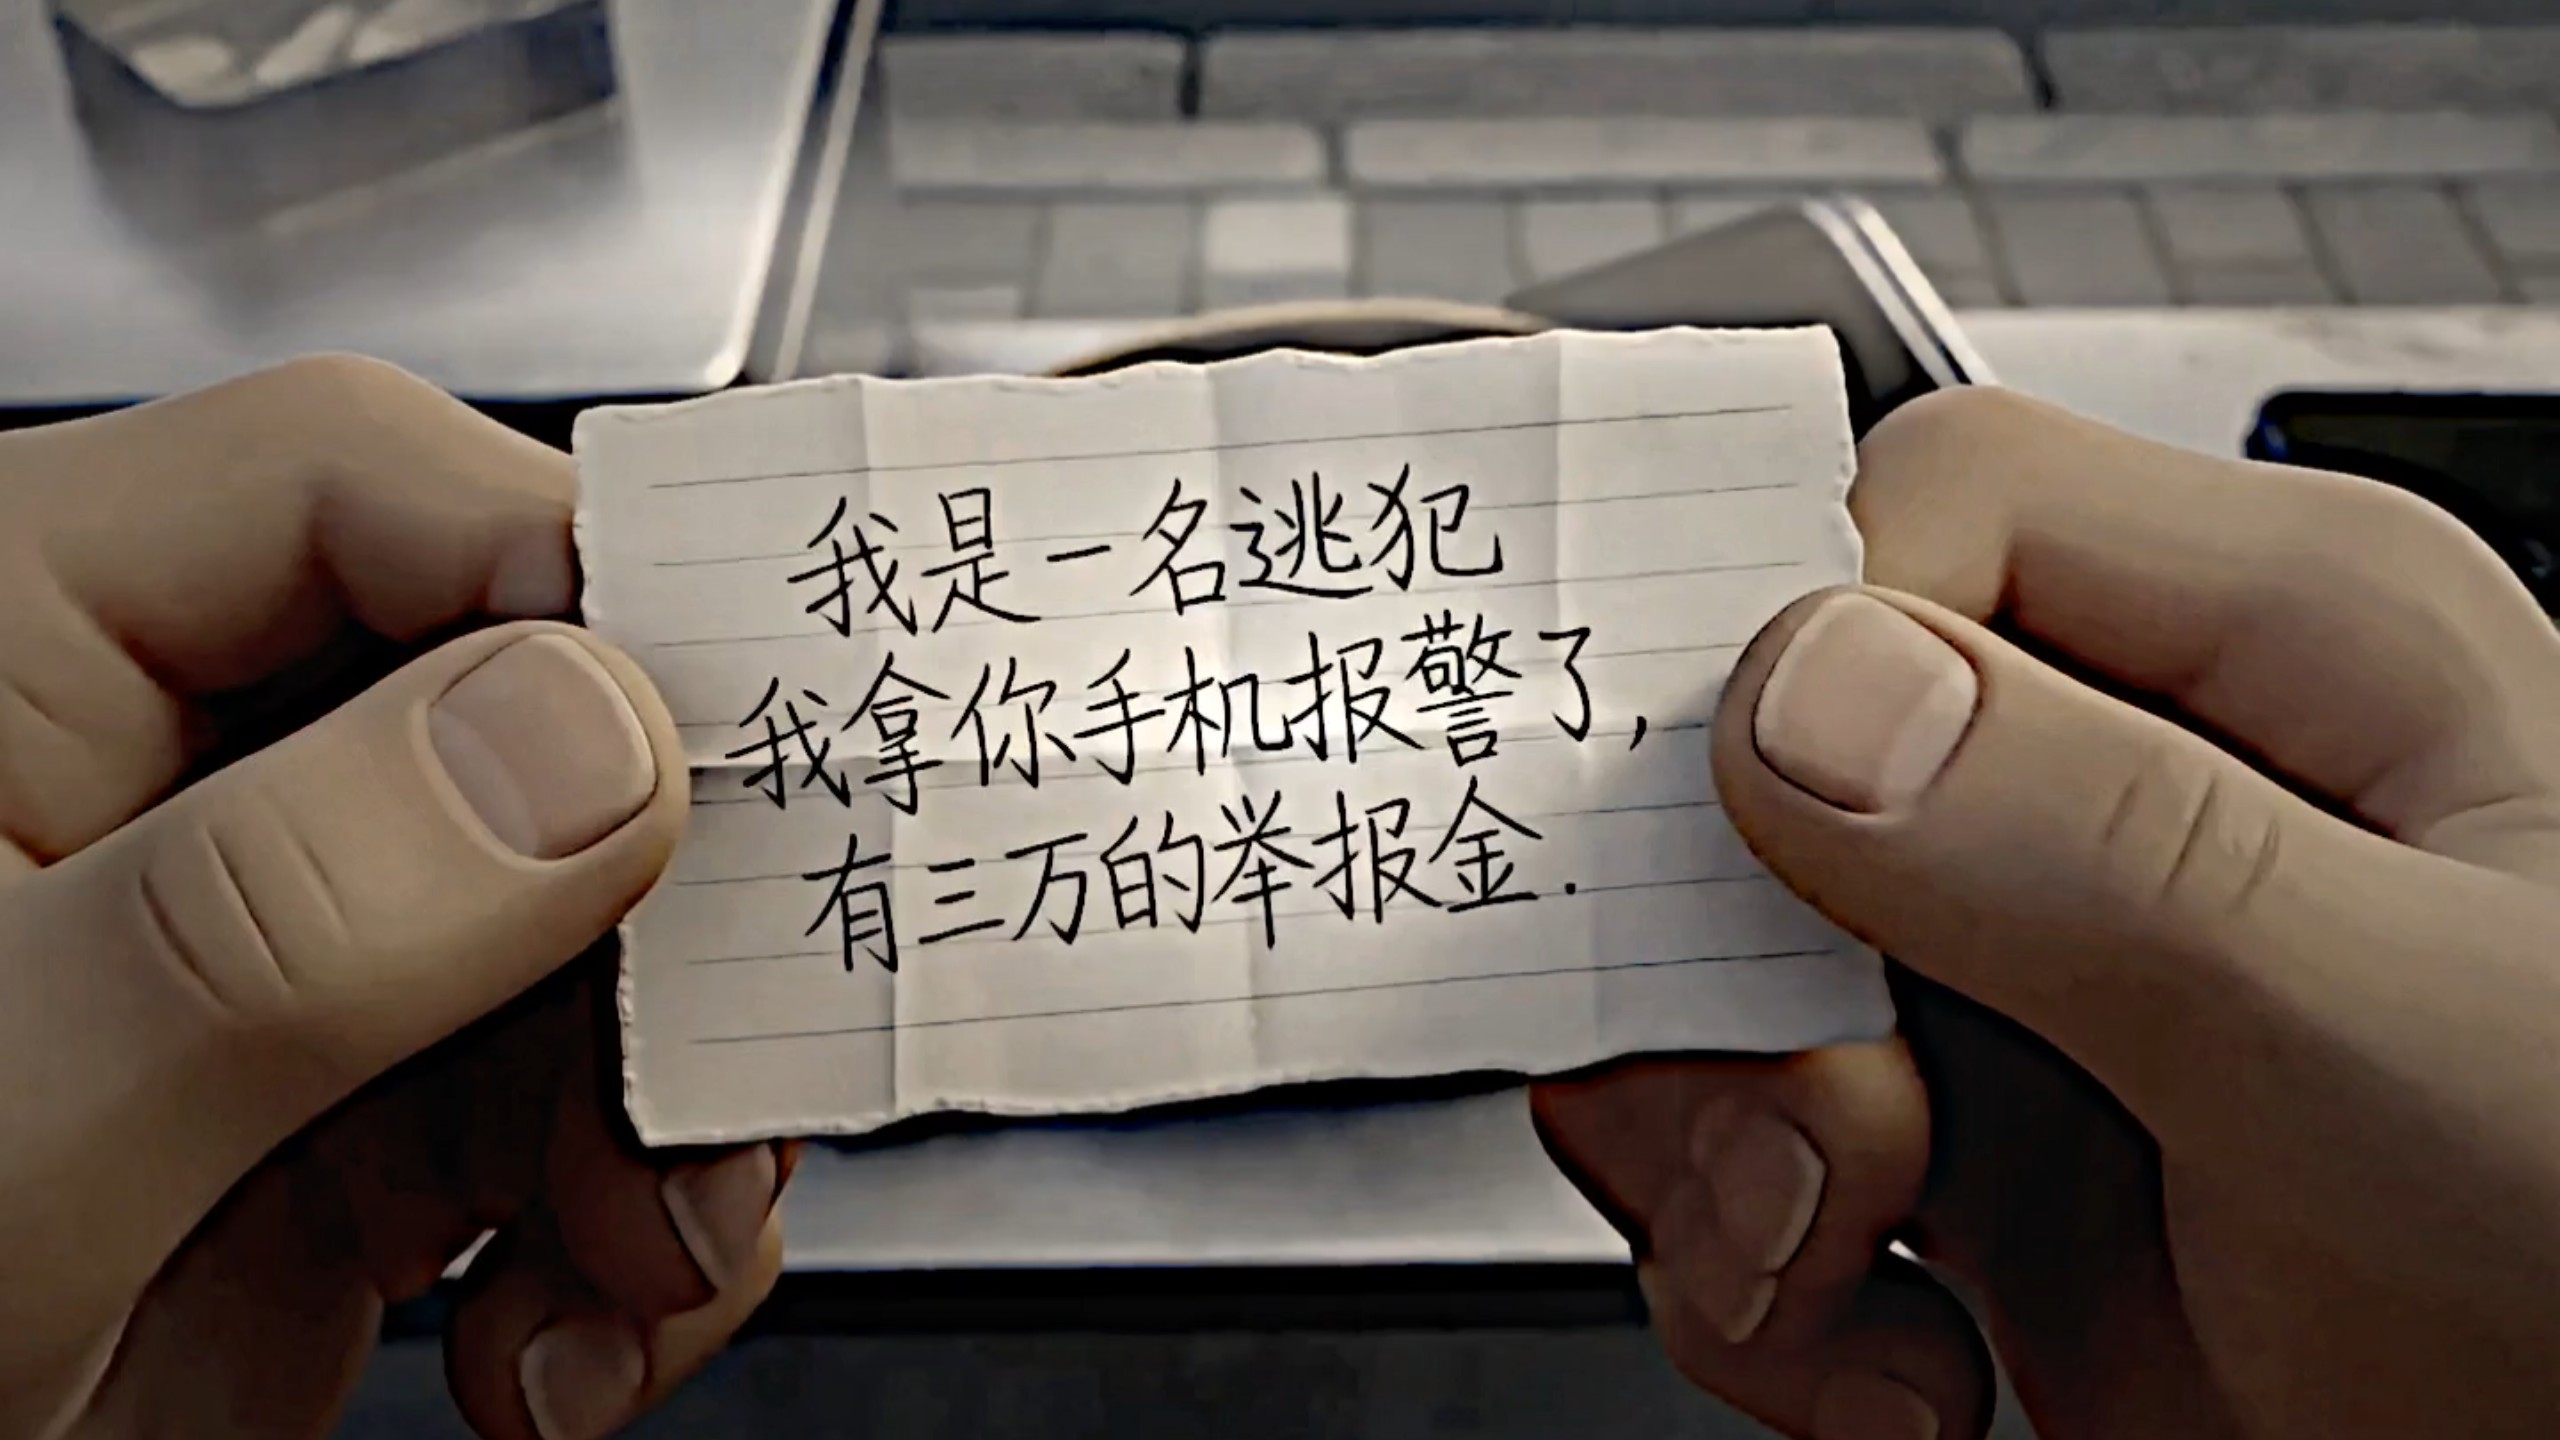 我是一名逃犯
我拿你手机报警了,
有三万的举报金.